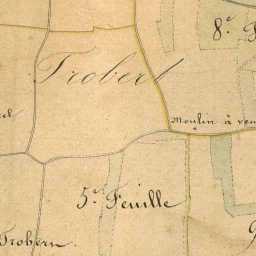 8.e
Trobert
Moulin à ven
5.e Feuille
Trobern.